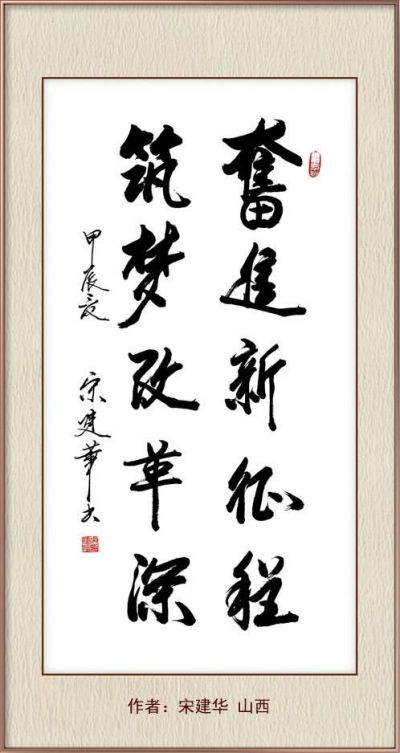 奮進新征程
筑梦改革深
甲辰夏
宋建華书
作者：宋建华 山西